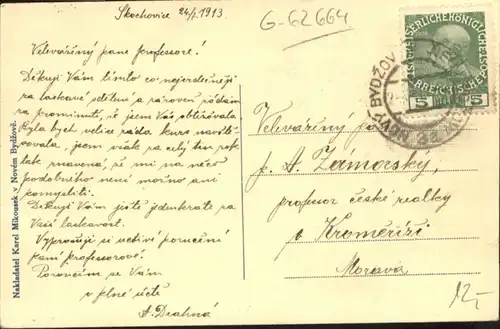 Skochovice 24/7 1913
G-62664
Velevážený pane professore!
Děkuji Vám tímto co nejsrdečněji
za laskavé sdělení a zároveň žádám
za prominutí, že jsem Vás obtěžovala.
Byla bych velice ráda kurs navště-
vovala, jsem však za celý ten rok
tak znavena, že mi na něco
podobného není možno ani
pomysliti.
Děkuji Vám ještě jedenkráte za
Vaši laskavost.
Vyprošuji si uctivé poručení
paní professorové!
Poroučím se Vám
v plné úctě
A. Drahná
Nakladatel Karel Mikousek v Novém Bydžově.
NOVÝ BYDŽOV
5 5
Velevážený pán
p. A. Zámorský,
profesor české reálky
v Kroměříži
Morava
12,-